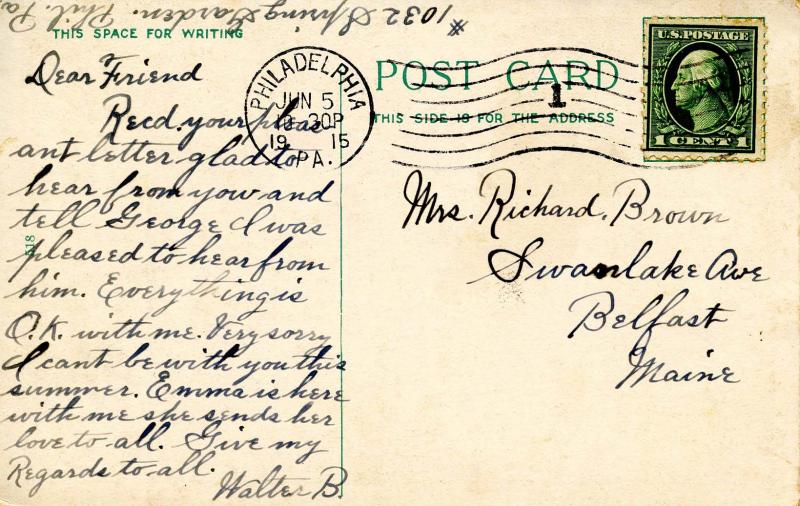 * 1032 Spring Garden. Phil. Pa.
THIS SPACE FOR WRITING
Dear Friend
Recd. your pleas
ant letter glad to
hear from you and
tell George I was
pleased to hear from
him. Everything is
O.K. with me. Very sorry
I cant be with you this
summer. Emma is here
with me she sends her
love to all. Give my
Regards to all.
Walter B.
518
PHILADELPHIA
JUN 5
30P
19 15
PA.
POST CARD
THIS SIDE IS FOR THE ADDRESS
1
U.S. POSTAGE
1 CENT 1
Mrs. Richard. Brown
Swanlake Ave
Belfast
Maine